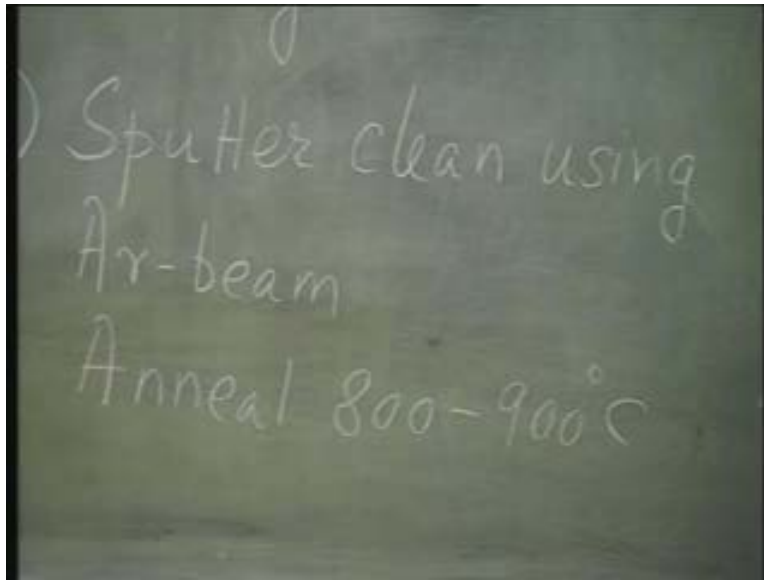 ) Sputter clean using
Ar-beam
Anneal 800-900°C